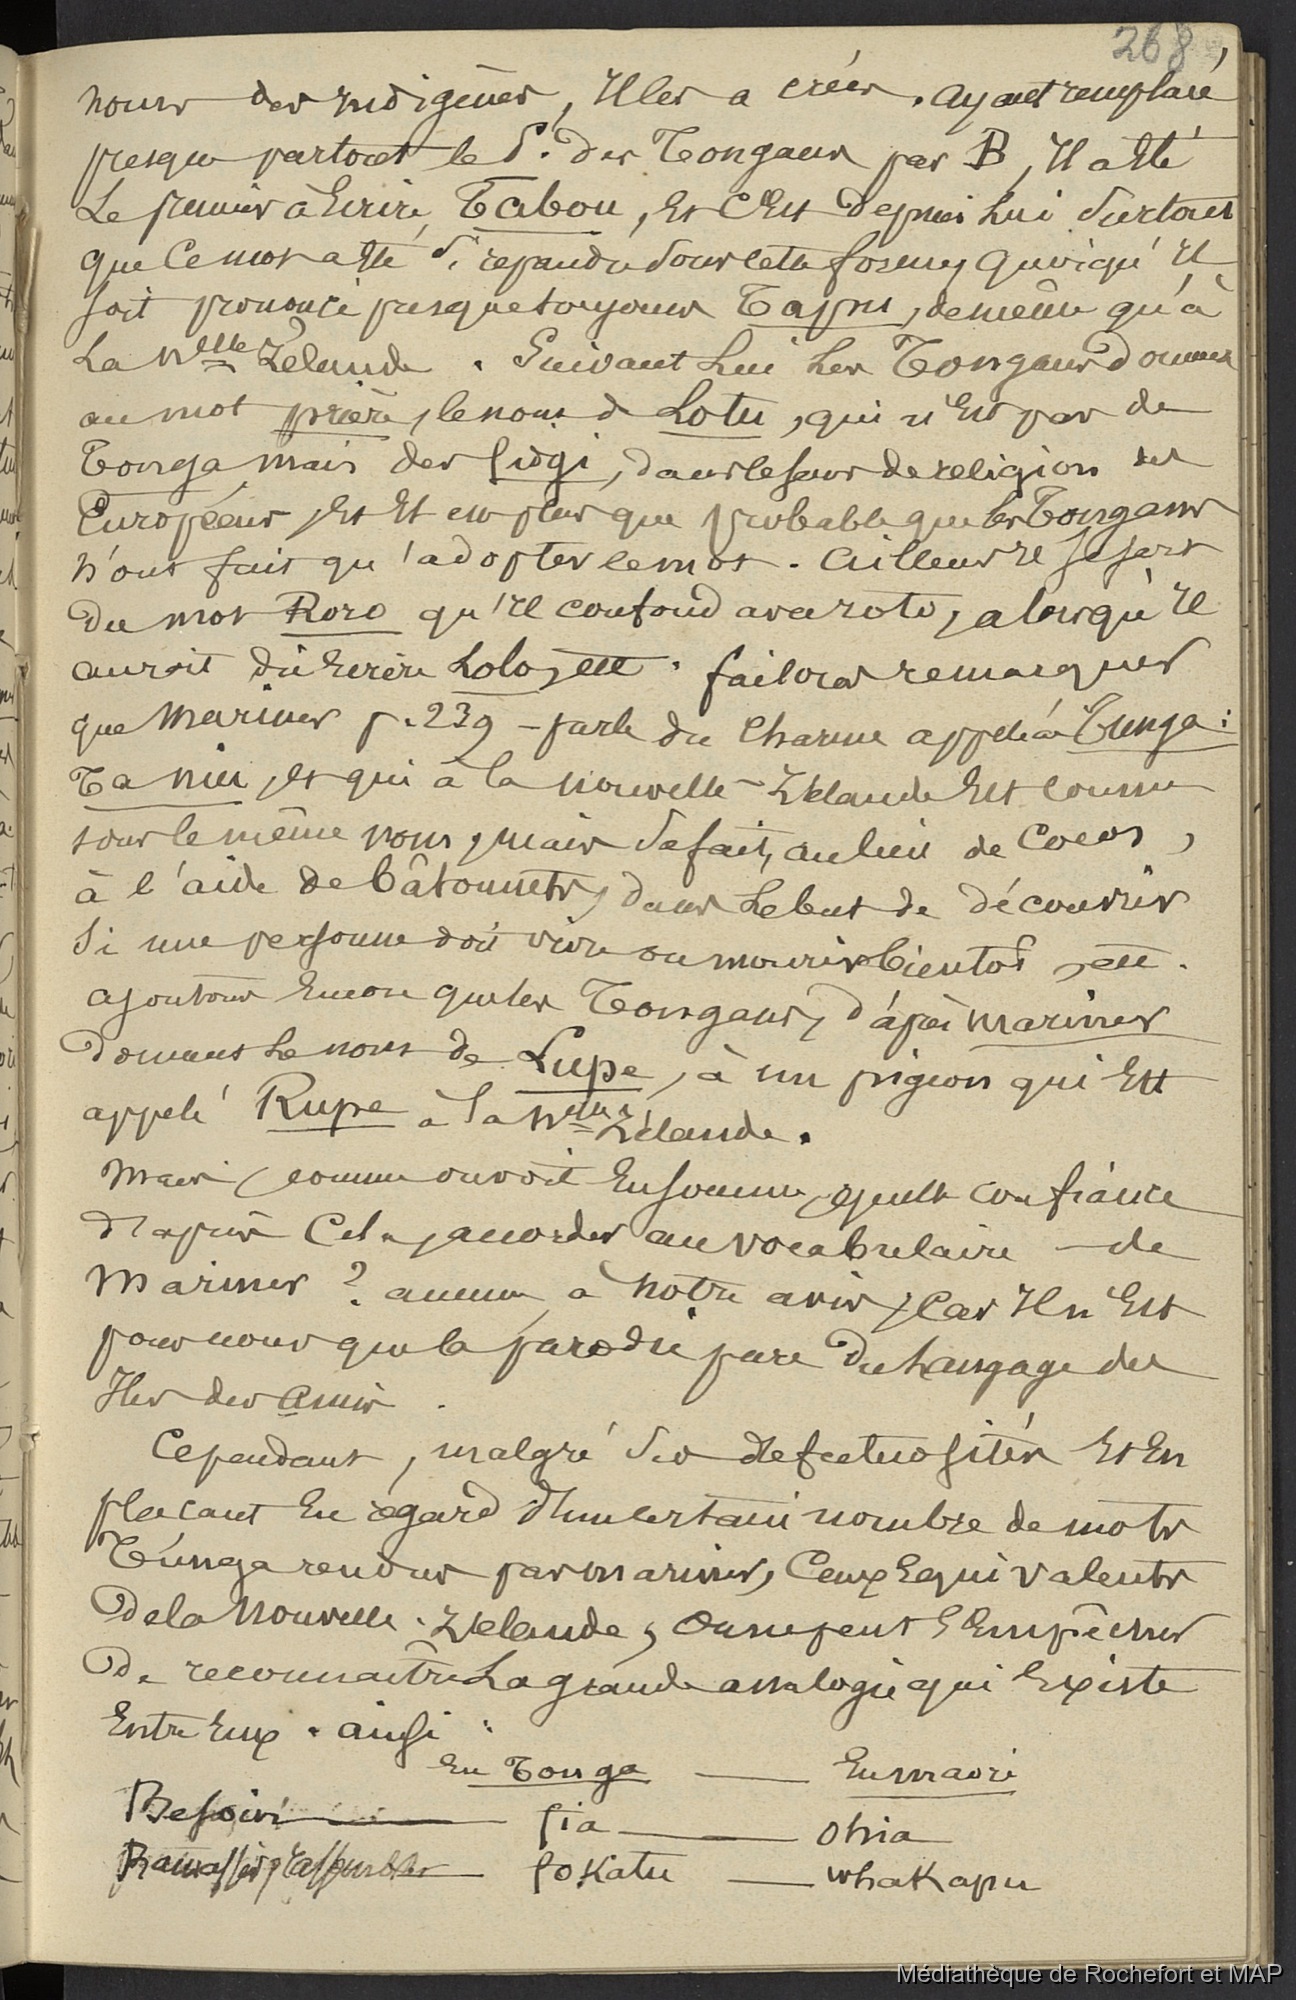 268
noms des indigènes, Il les a créés. ayant remplacé
presque partout le P. des Tongans par B, Il a Eté
Le premier à Ecrire Tabou, Et C'Est depuis Lui Surtout
que Ce mot a Eté Si répandu Sous cette forme, quoiqu'Il
soit prononcé presque toujours Tapu, de même qu'à
La Nelle Zélande. Suivant Lui Les Tongans donnent
au mot prière, le nom de Lotu, qui n'Est pas de
Tonga mais des fidgi, dans le sens de religion des
Européens, Et Il Est plus que probable que les Tongans
n'ont fait qu'adopter le mot. Ailleurs Il se sert
Du mot Roro qu'Il confond avec roto, alors qu'Il
auroit dû Ecrire Lolo, Ett. faisons remarquer
que Mariner p. 239 - parle du Charme appelé Tunga:
Ta niu, Et qui à la nouvelle-Zélande Est connu
sous le même nom, mais Se fait, au lieu de Cocos,
à l'aide de bâtonnets, dans Le but de découvrir
Si une personne doit vivre ou mourir bientôt, ett.
ajoutons Encore que les Tongans, d'après Mariner
Donnent Le nom de Lupe, à un pigeon qui Est
appelé Rupe à la Nelle Zélande.
Mais, comme on voit En somme, quelle confiance
d'après Cela, accorder au vocabulaire de
Mariner ? aucune, à notre avis, Car Il n'Est
pour nous que la parodie pure Du Langage des
Iles des Amis.
Cependant, malgré Ses défectuosités Et En
plaçant En regard d'un certain nombre de mots
Tunga rendus par Mariner, Ceux Equivalents
De la Nouvelle-Zélande, On ne peut S'Empêcher
De reconnaître La grande analogie qui Existe
Entre Eux. ainsi :
En Tonga — En maori
Besoin — fia — ohia
Ramasser, rassembler — foKatu — whaKapu
Médiathèque de Rochefort et MAP